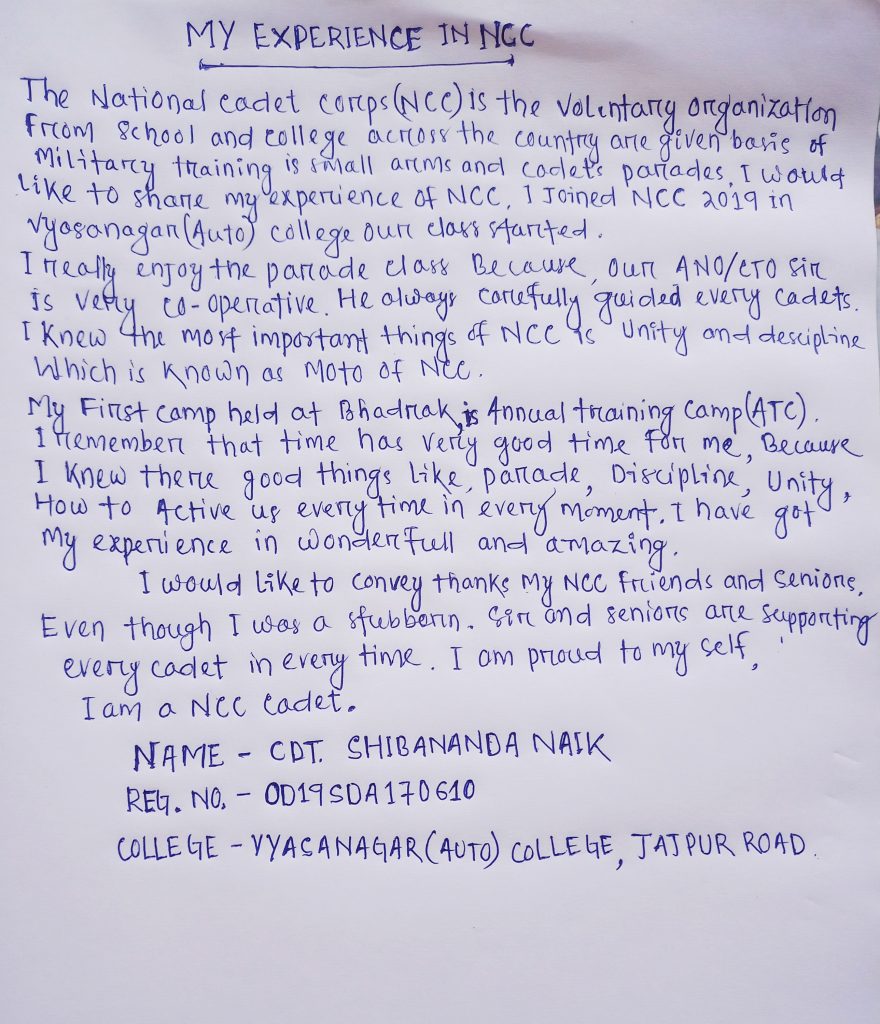 MY EXPERIENCE IN NCC
The National cadet corps(NCC) is the Voluntary organization
From school and college across the country are given basis of
Military training is small arms and cadets parades. I would
Like to share my experience of NCC. I Joined NCC 2019 in
Vyasanagar(Auto) college our class started.
I really enjoy the parade class Because, our ANO/CTO Sir
is very co-operative. He always carefully guided every cadets.
I Knew the most important things of NCC is Unity and descipline
Which is Known as Moto of NCC.
My First camp held at Bhadrak, is Annual training Camp(ATC).
I remember that time has very good time for me, Because
I Knew there good things Like, parade, Discipline, Unity,
How to Active us every time in every moment. I have got
My experience in wonderfull and amazing.
I would Like to convey thanks My NCC Friends and Seniors.
Even though I was a stubborn. Sir and seniors are supporting
every cadet in every time. I am proud to my self,
I am a NCC cadet.
NAME - CDT. SHIBANANDA NAIK
REG. NO. - OD19SDA170610
COLLEGE - VYASANAGAR(AUTO) COLLEGE, JAJPUR ROAD.